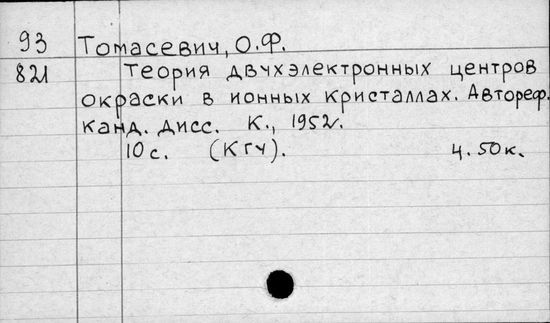 93 Томасевич, О.Ф.
821 Теория двухэлектронных центров
окраски в ионных кристаллах. Автореф.
канд. дисс. К., 1952.
10 с. (КГУ). 4.50к.